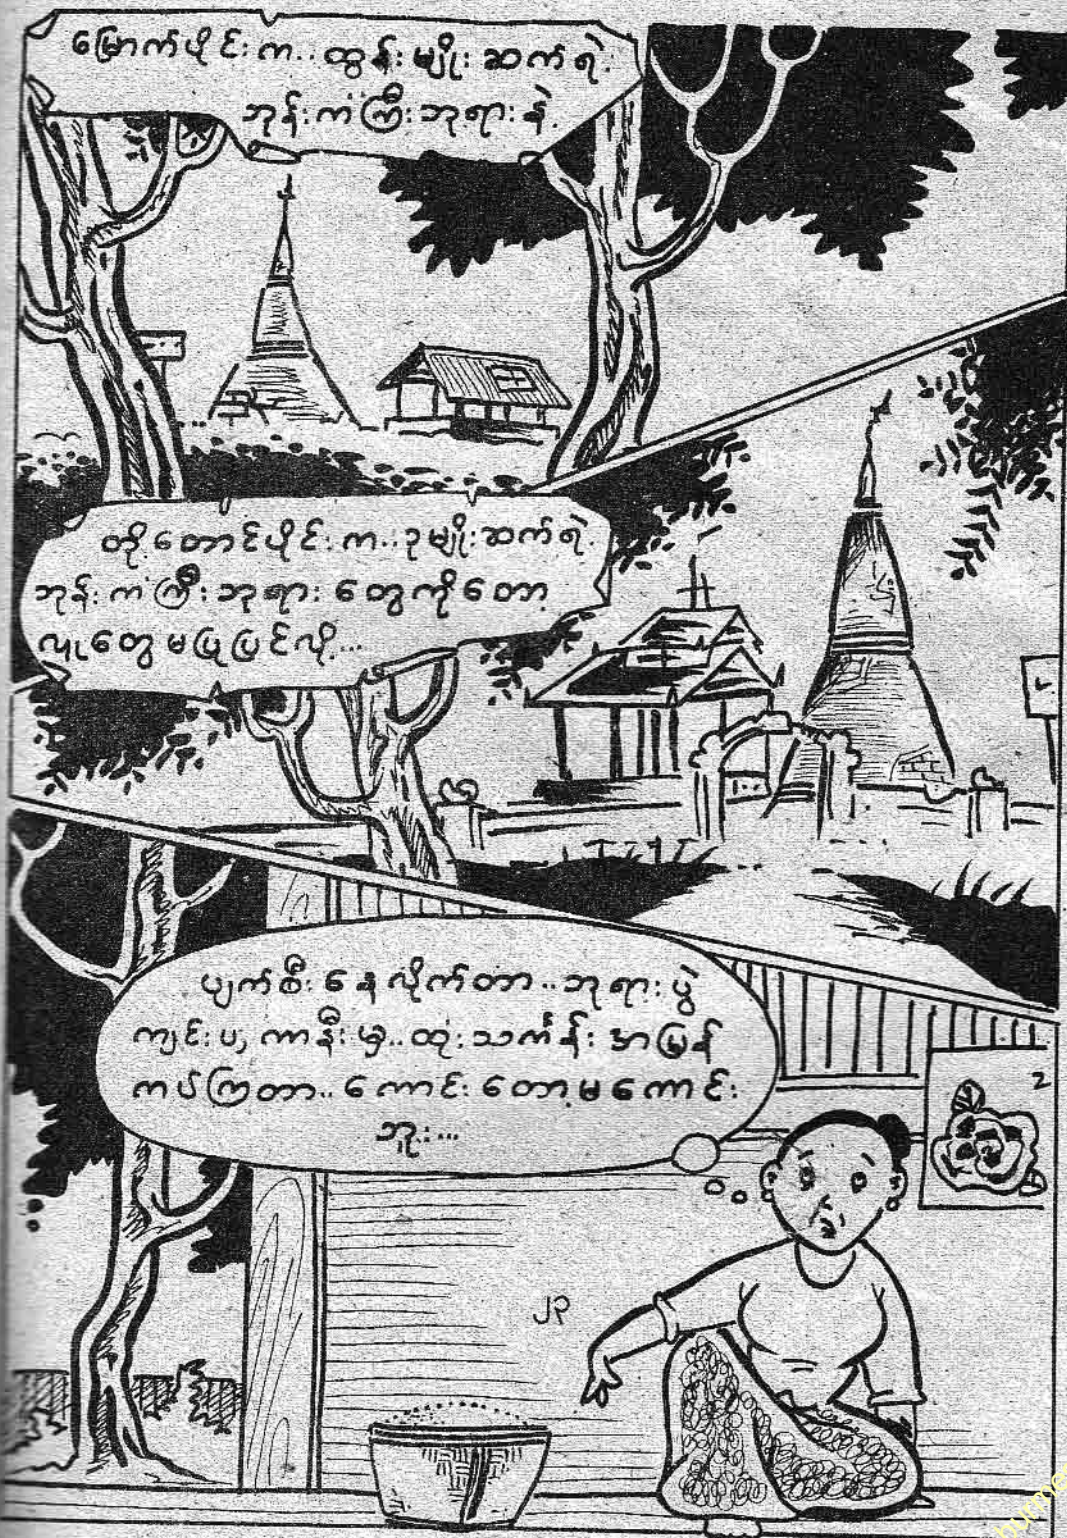 မြောက်ပိုင်းက..ထွန်းမျိုးဆက်ရဲ့
ဘုန်းကံကြီးဘုရားနဲ့
တို့တောင်ပိုင်းက..ဥမျိုးဆက်ရဲ့
ဘုန်းကံကြီးဘုရားတွေကိုတော့
လူတွေမပြုပြင်လို့...
ပျက်စီးနေလိုက်တာ..ဘုရားပွဲ
ကျင်းပ, ကာနီးမှ..ထုံးသင်္ကန်းအမြန်
ကပ်ကြတာ..ကောင်းတော့မကောင်း
ဘူး...
2
၂၃